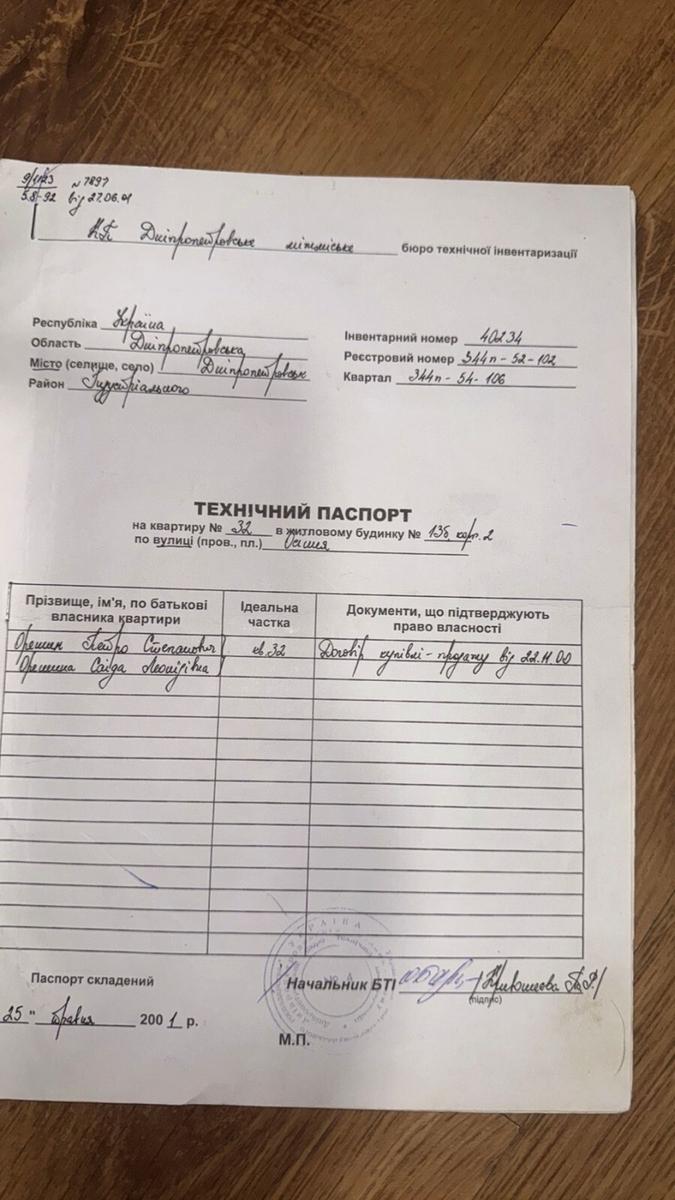 9/1123
58-92
№ 7897
від 27.06.01
КП Дніпропетровське міжміське бюро технічної інвентаризації
Республіка Україна
Область Дніпропетровська
Місто (селище, село) Дніпропетровськ
Район Індустріального
Інвентарний номер 40234
Реєстровий номер 344п-52-102
Квартал 344п-54-106
ТЕХНІЧНИЙ ПАСПОРТ
на квартиру № 32 в житловому будинку № 13б, корп. 2
по вулиці (пров., пл.)
Прізвище, ім'я, по батькові власника квартири
Ідеальна частка
Документи, що підтверджують право власності
Орешин Петро Степанович
кв. 32
Договір купівлі-продажу від 22.11.00
Орешина Саіда Леонідівна
УКРАЇНА
Паспорт складений
Начальник БТІ
(підпис)
25 " травня 2001 р.
М.П.